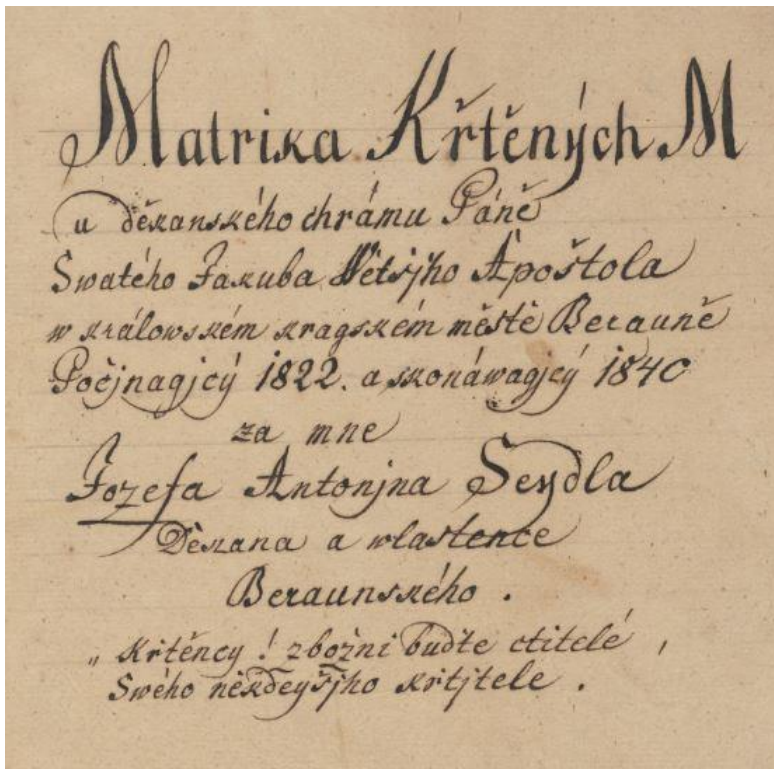 Matrika Křtěných M
u děkanského chrámu Páně
Swatého Jakuba Větsjho Apoštola
w králowském kragském městě Berauně
Počjnagjcý 1822. a skonáwagjcý 1840
za mne
Jozefa Antonjna Seydla
Děkana a wlastence
Beraunského.
„Křtěncy! zbožni buďte ctitelé,
Swého někdeyšjho křtjtele.